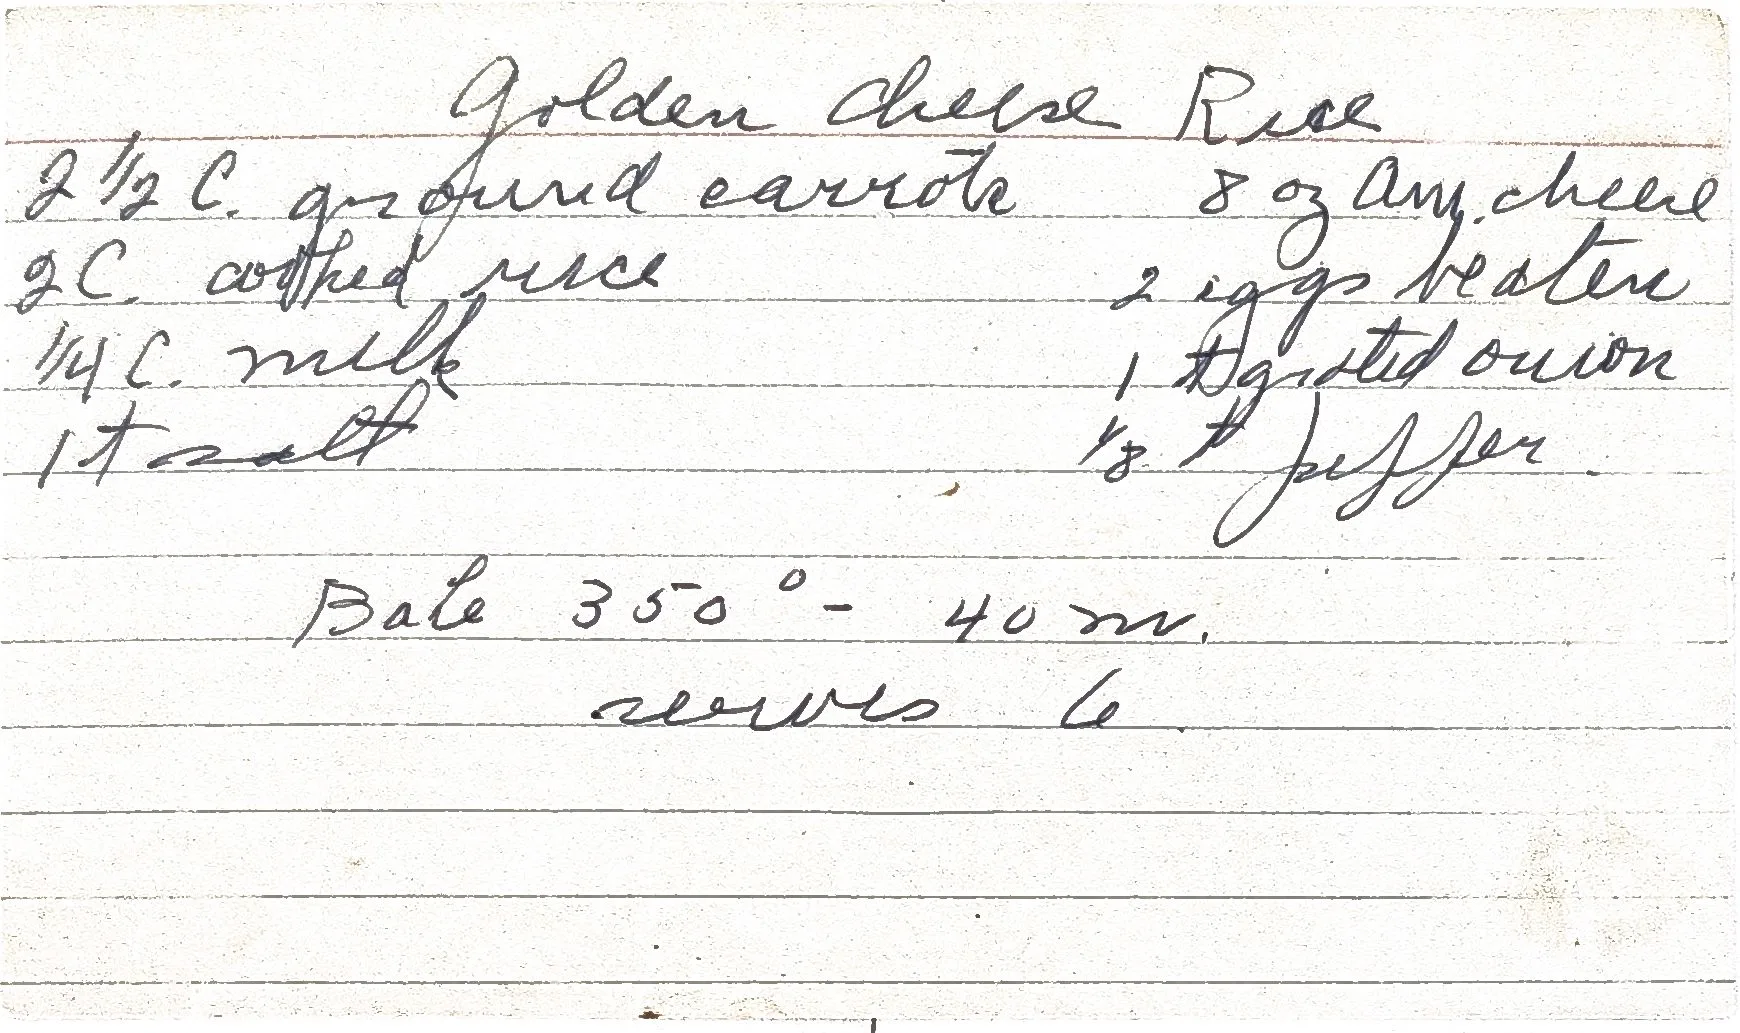 Golden Cheese Rice
2 1/2 C. ground carrots 8 oz Am. cheese
2 C. cooked rice 2 eggs beaten
1/4 C. milk 1 T grated onion
1 t salt 1/8 t pepper.
Bake 350° - 40 m.
serves 6